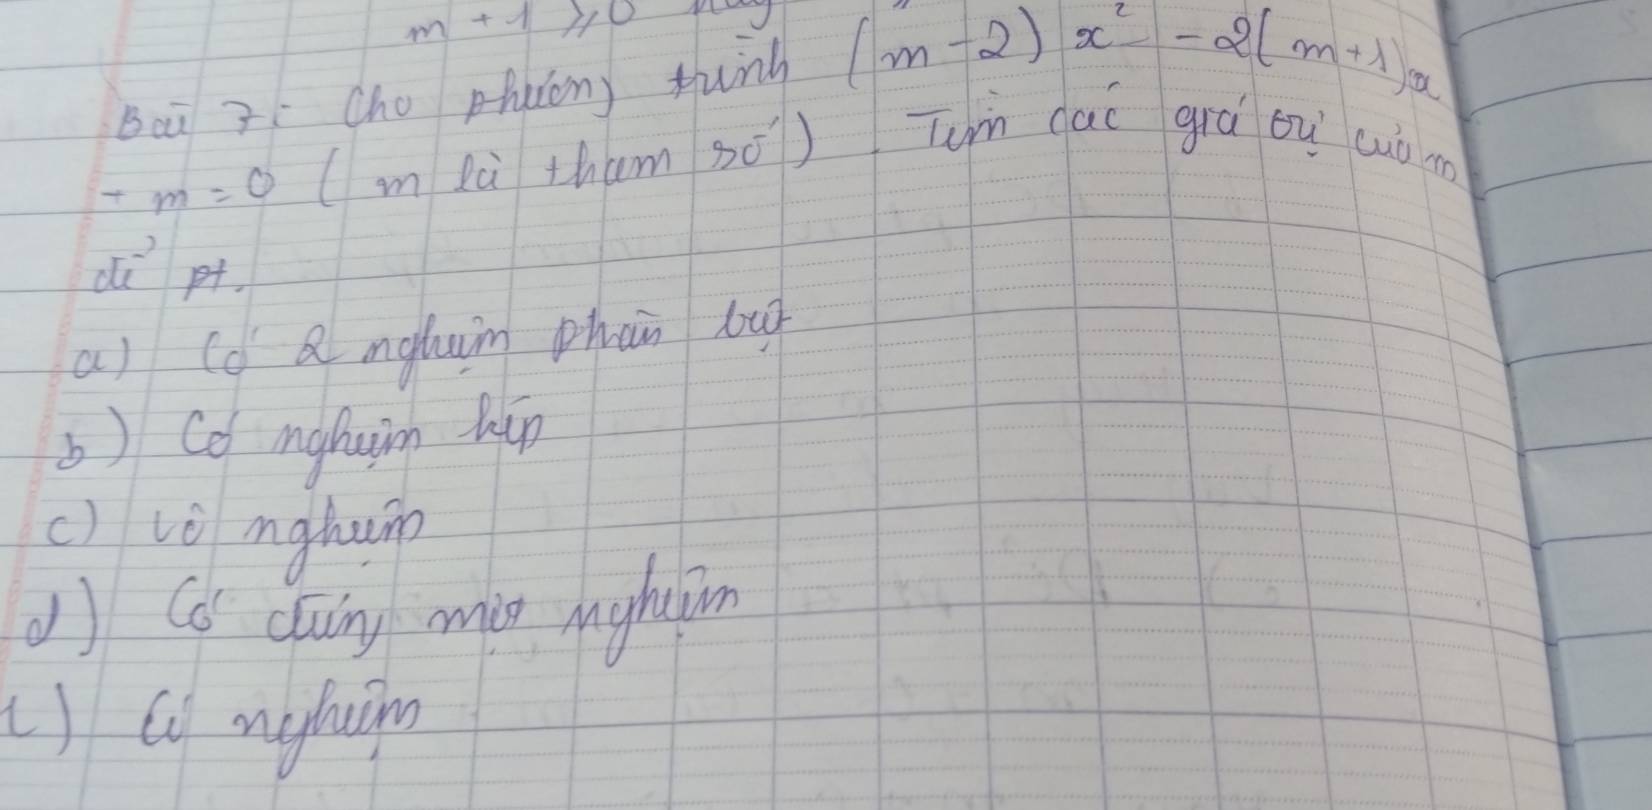 m + 1 ≥ 0
Bài 7: Cho phương trình (m - 2) x² - 2(m+1)x
+ m = 0 ( m là tham số ). Tìm các giá trị của m
để pt.
a) Có 2 nghiệm phân biệt
b) Có nghiệm kép
c) Vô nghiệm
d) Có đúng một nghiệm
e) Có nghiệm